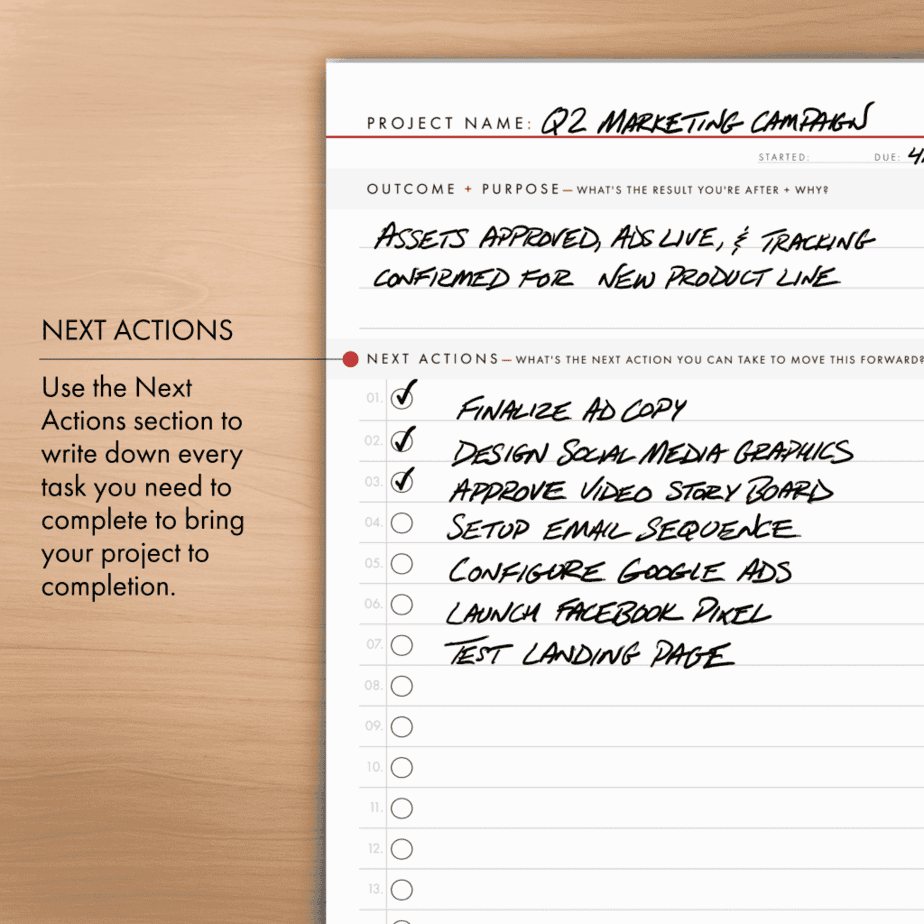 PROJECT NAME: Q2 MARKETING CAMPAIGN
STARTED: DUE: 4/
OUTCOME + PURPOSE—WHAT'S THE RESULT YOU'RE AFTER + WHY?
ASSETS APPROVED, ADS LIVE, & TRACKING
CONFIRMED FOR NEW PRODUCT LINE
NEXT ACTIONS
Use the Next
Actions section to
write down every
task you need to
complete to bring
your project to
completion.
NEXT ACTIONS—WHAT'S THE NEXT ACTION YOU CAN TAKE TO MOVE THIS FORWARD?
01. FINALIZE AD COPY
02. DESIGN SOCIAL MEDIA GRAPHICS
03. APPROVE VIDEO STORY BOARD
04. SETUP EMAIL SEQUENCE
05. CONFIGURE GOOGLE ADS
06. LAUNCH FACEBOOK PIXEL
07. TEST LANDING PAGE
08.
09.
10.
11.
12.
13.